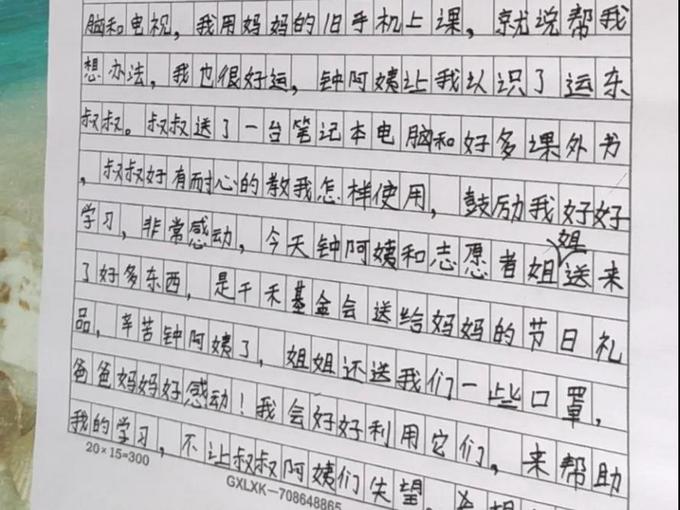 脑和电视，我用妈妈的旧手机上课，就说帮我
想办法，我也很好运，钟阿姨让我认识了运东
叔叔。叔叔送了一台笔记本电脑和好多课外书
，叔叔好有耐心的教我怎样使用，鼓励我好好
学习，非常感动，今天钟阿姨和志愿者姐姐送来
了好多东西，是千禾基金会送给妈妈的节日礼
品，辛苦钟阿姨了，姐姐还送我们一些口罩，
爸爸妈妈好感动！我会好好利用它们，来帮助
我的学习，不让叔叔阿姨们失望。
20×15=300
GXLXK—708648865